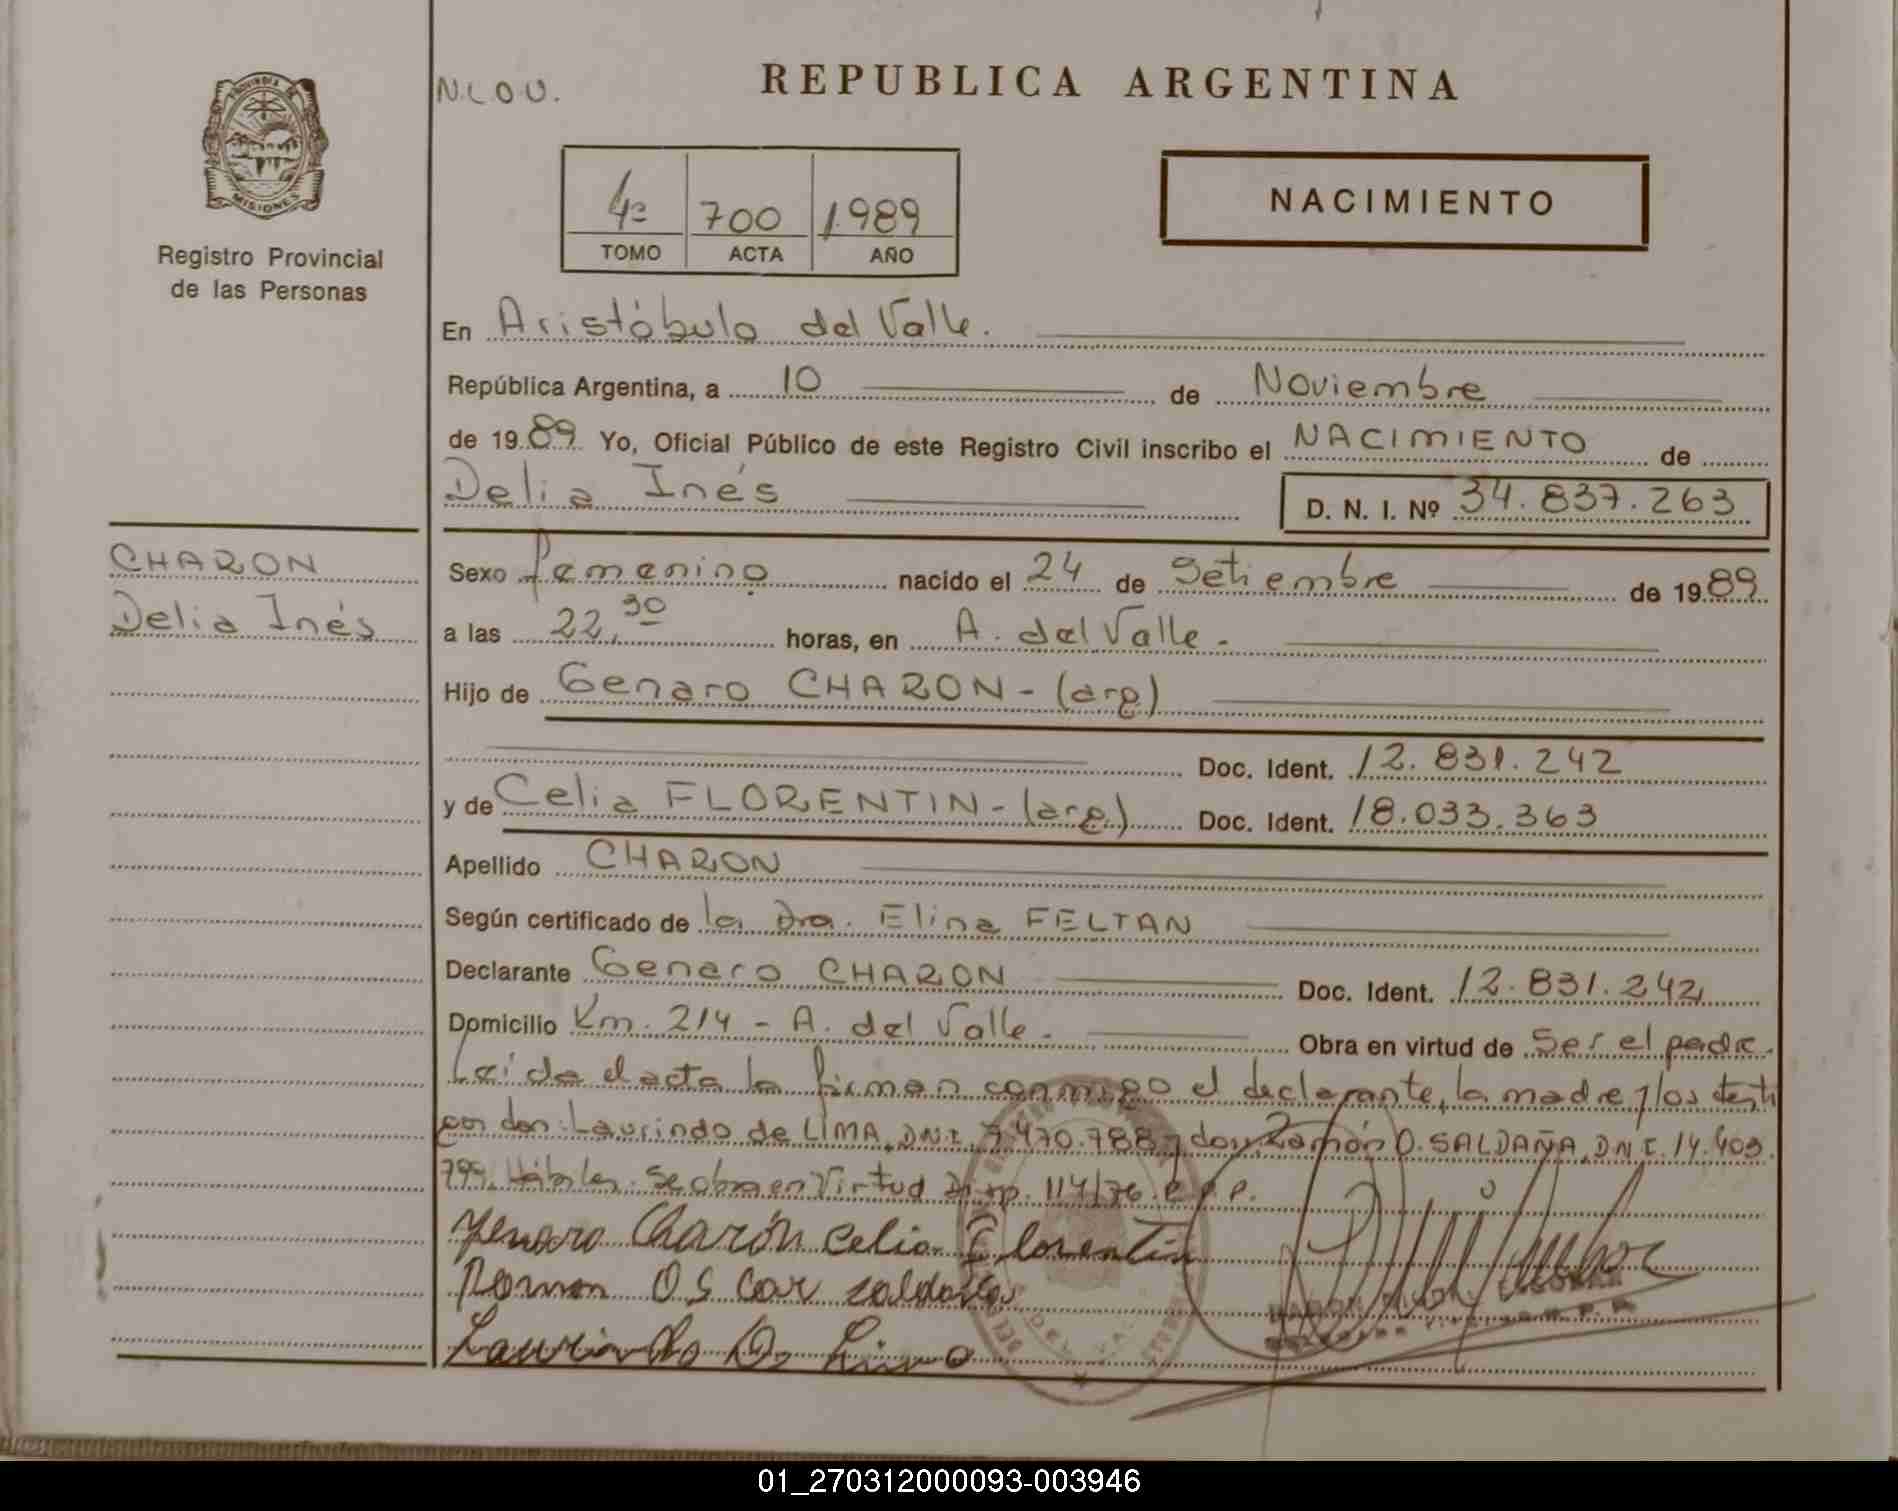 N.L.O.U.
REPUBLICA ARGENTINA
PROVINCIA DE
MISIONES
Registro Provincial
de las Personas
4º 700 1.989
TOMO ACTA AÑO
NACIMIENTO
En Aristóbulo del Valle.
República Argentina, a 10 de Noviembre
de 1989 Yo, Oficial Público de este Registro Civil inscribo el NACIMIENTO de
Delia Inés
D. N. I. Nº 34.837.263
CHARON
Delia Inés
Sexo femenino nacido el 24 de Setiembre de 1989
a las 22,30 horas, en A. del Valle.-
Hijo de Genaro CHARON-(arg)
Doc. Ident. 12.831.242
y de Celia FLORENTIN-(arg) Doc. Ident. 18.033.363
Apellido CHARON
Según certificado de la Dra. Elina FELTAN
Declarante Genaro CHARON Doc. Ident. 12.831.242
Domicilio Km. 214 - A. del Valle.- Obra en virtud de Ser el padre.
Leída el acta la firman conmigo el declarante, la madre y los testi
gos don: Laurindo de LIMA, DNI. 7.470.788 y don Ramón O. SALDAÑA, DNI. 14.403.
799. Hábiles. Se obra en Virtud Disp. 114/76.
Genaro Charón Celia Florentin
Ramon Oscar Saldaña
Laurindo De Lima
01_270312000093-003946